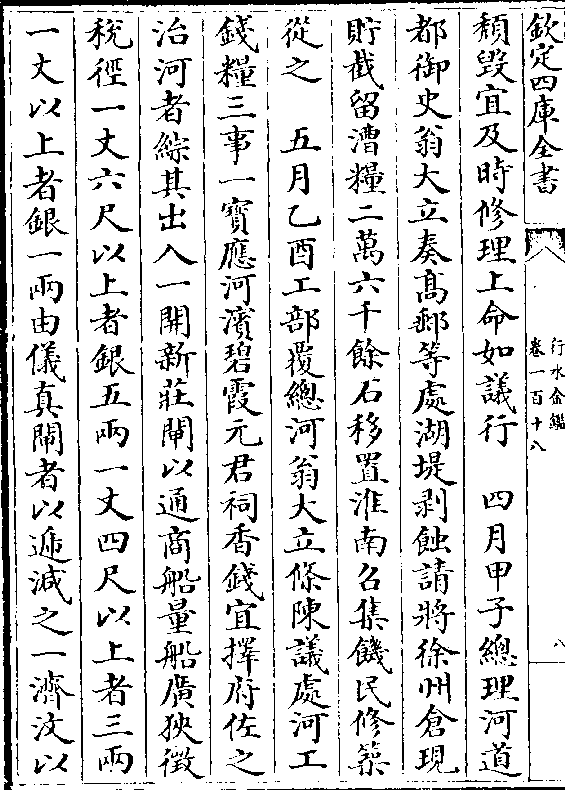 欽定四庫全書
行水金鑑
卷一百十八
八
頽毀宜及時修理上命如議行　四月甲子總理河道
都御史翁大立奏髙郵等處湖堤剥蝕請將徐州倉現
貯截留漕糧二萬六千餘石移置淮南召集饑民修築
從之　五月乙酉工部覆總河翁大立條陳議處河工
錢糧三事一寶應河濱碧霞元君祠香錢宜擇府佐之
治河者綜其出入一開新莊閘以通商船量船廣狹徵
稅徑一丈六尺以上者銀五兩一丈四尺以上者三兩
一丈以上者銀一兩由儀真閘者以遞減之一濟汶以